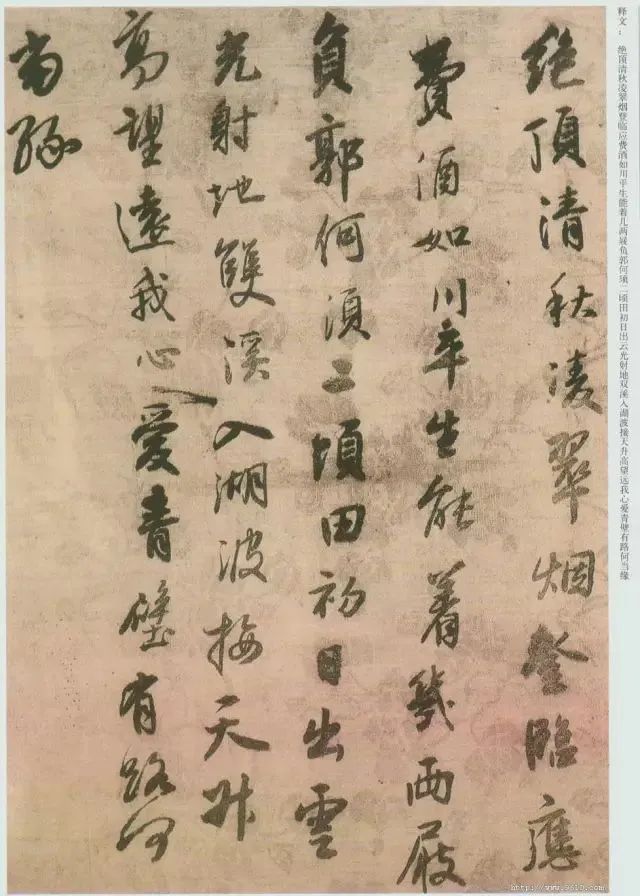 释文： 绝顶清秋凌翠烟登临应费酒如川平生能着几两屐负郭何须二顷田初日出云光射地双溪入湖波接天升高望远我心爱青壁有路何当缘
絶頂清秋凌翠烟登臨應
費酒如川平生能着幾兩屐
負郭何須二頃田初日出雲
光射地雙溪入湖波接天升
高望遠我心愛青壁有路何
當緣
http://www.9610.com